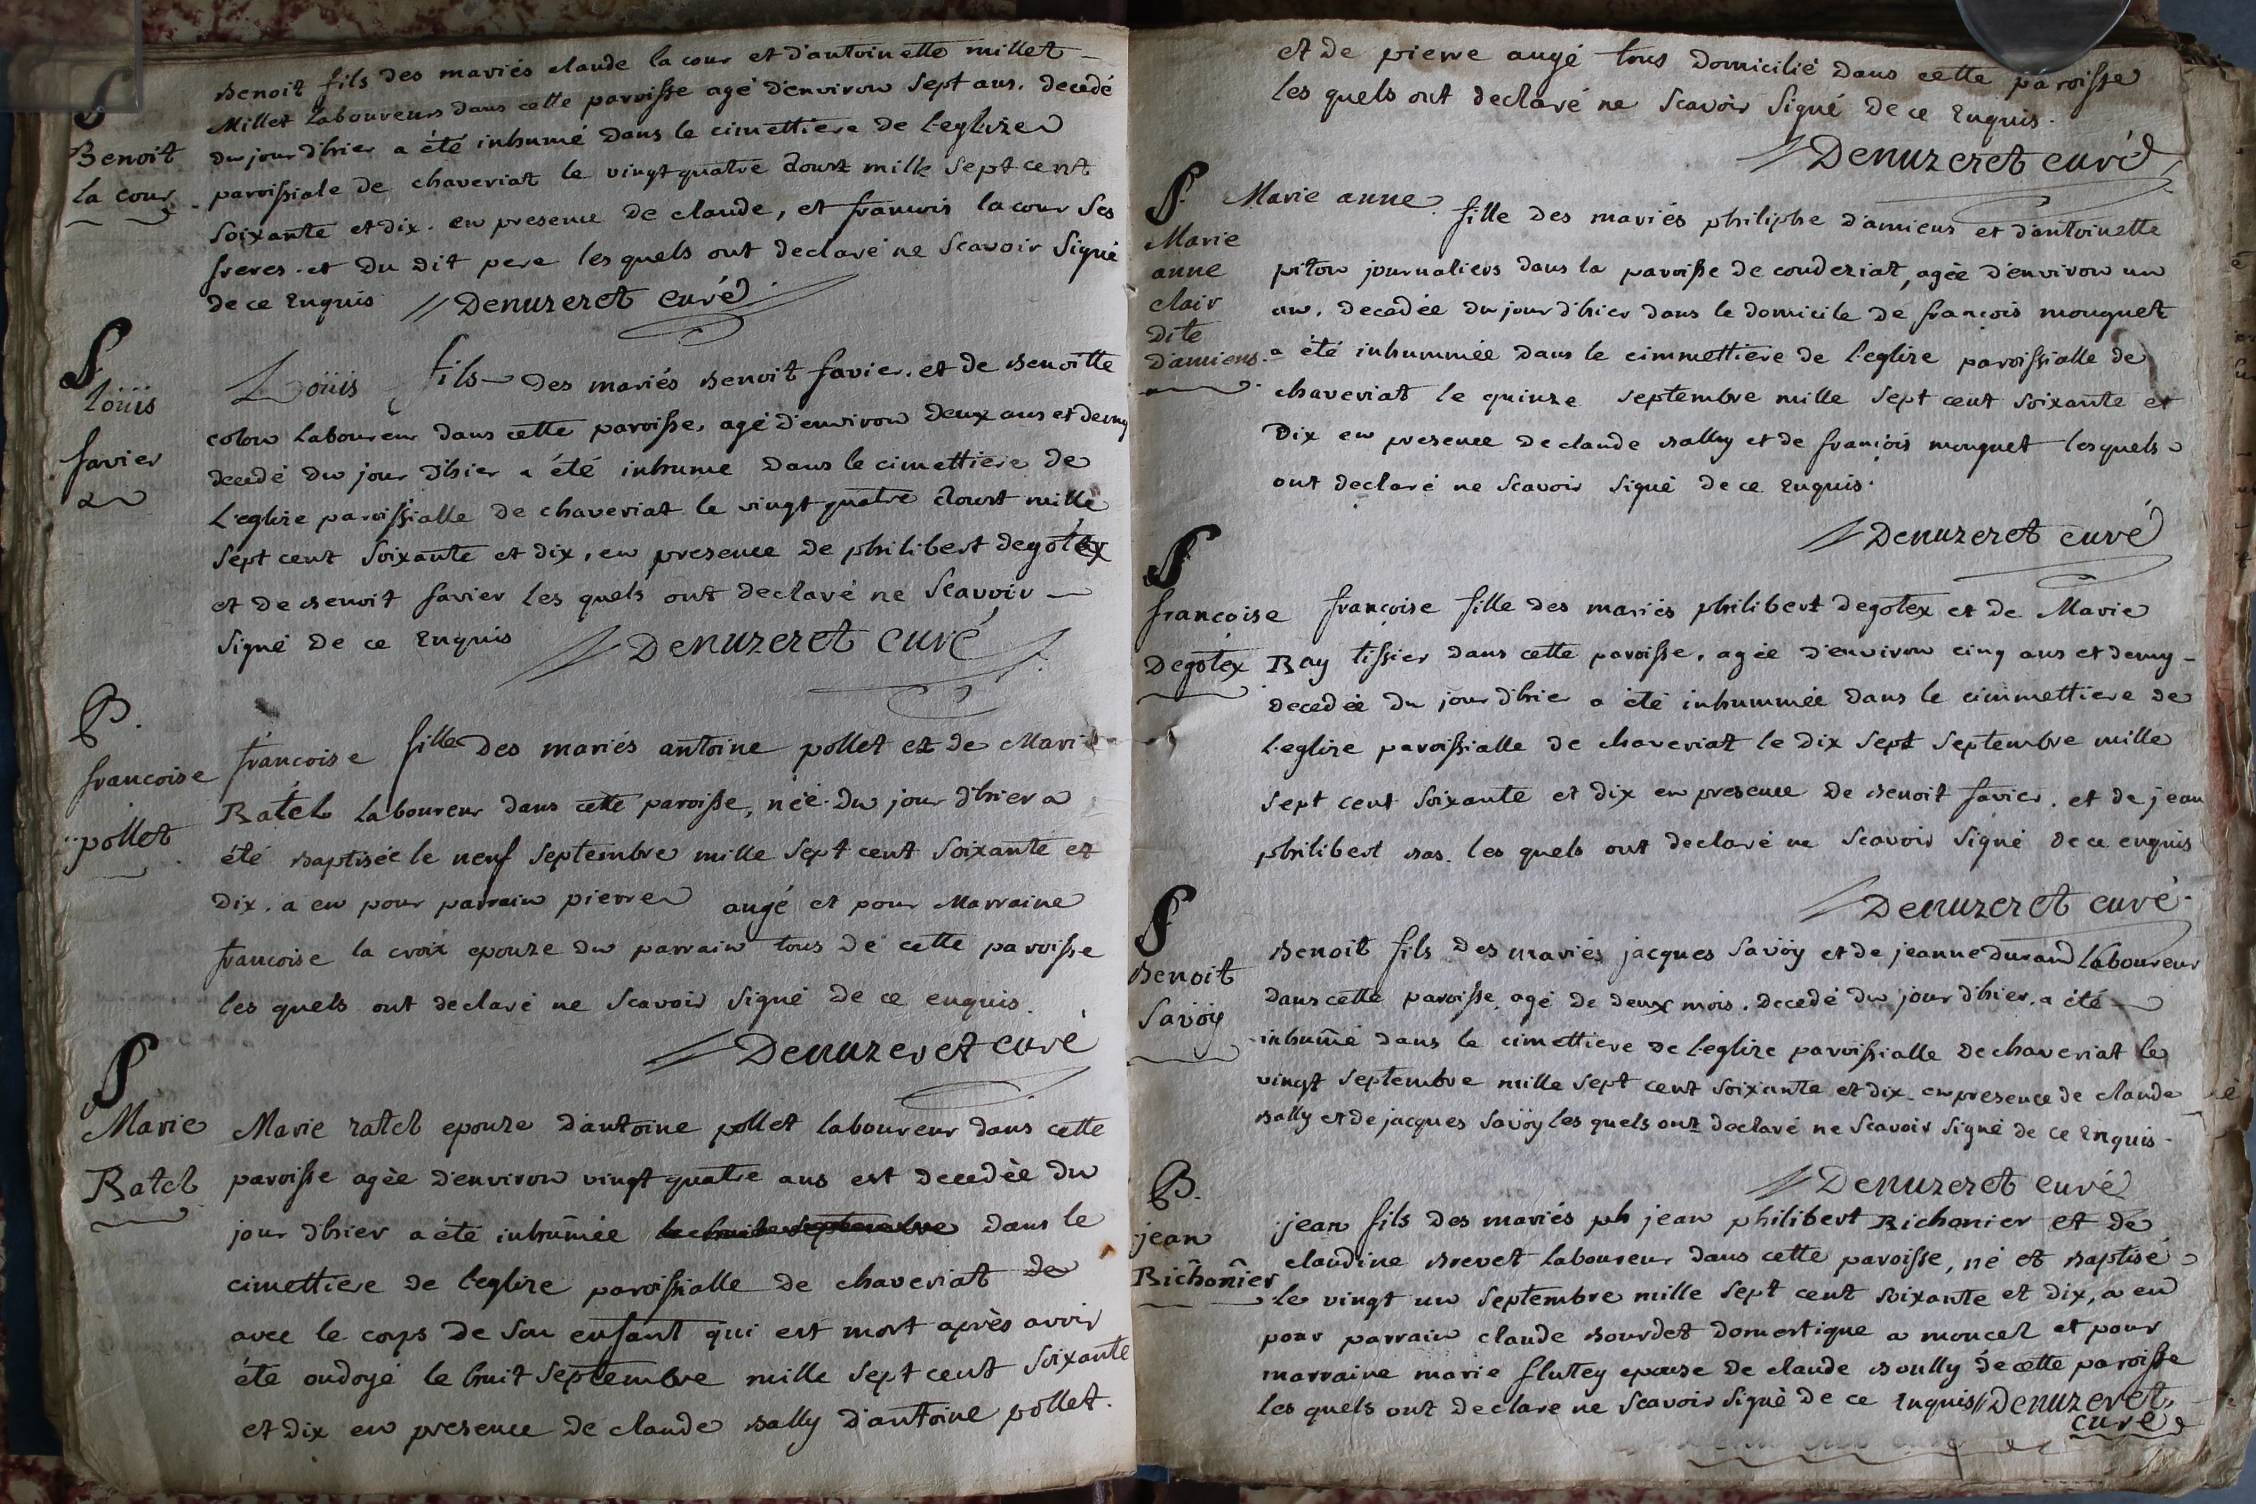 S
Benoit
la cour
Benoit fils des mariés claude la cour et d'antoinette millet
Millet laboureurs dans cette paroisse agé d'environ sept ans. decedé
du jour d'hier a été inhumé dans le cimettiere de l'eglize
paroissiale de chaveriat le vingt quatre aoust mille sept cent
soixante et dix. en presence de claude, et francois lacour ses
freres. et du dit pere les quels ont declaré ne scavoir signé
de ce enquis // Denuzeret curé
S
loüis
favier
Loüis fils des mariés Benoit favier. et de Benoitte
colon laboureur dans cette paroisse, agé d'environ deux ans et demy
decedé du jour d'hier a été inhume dans le cimettiere de
l'eglize paroissialle de chaveriat le vingt quatre aoust mille
sept cent soixante et dix, en presence de philibert degotex
et de Benoit favier les quels ont declaré ne scavoir
signé de ce enquis // Denuzeret curé
B.
francoise
pollet
francoise fille des mariés antoine pollet et de Marie
Ratel laboureur dans cette paroisse, née du jour d'hier a
été Baptisée le neuf septembre mille sept cent soixante et
dix. a eu pour parrain pierre augé et pour Marraine
francoise la croix epouze du parrain tous de cette paroisse
les quels ont declaré ne scavoir signé de ce enquis.
// Denuzeret curé
S
Marie
Ratel
Marie ratel epouze d'antoine pollet laboureur dans cette
paroisse agèe d'environ vingt quatre ans est decedèe du
jour d'hier a été inhumée le huit septembre dans le
cimettiere de l'eglize paroissialle de chaveriat de
avec le corps de son enfant qui est mort après avoir
été ondoyé le huit septembre mille sept cent soixante
et dix en presence de claude Bally d'antoine pollet.
et de pierre augé tous domicilié dans cette paroisse
les quels ont declaré ne scavoir signé de ce enquis.
// Denuzeret curé
S.
Marie
anne
clair
dite
d'amiens.
Marie anne. fille des mariés philiphe d'amiens et d'antoinette
piton journaliers dans la paroisse de condeziat, agèe d'environ un
an. decedée du jour d'hier dans le domicile de francois mouquet
a été inhummée dans le cimmettiere de l'eglize paroissialle de
chaveriat le quinze septembre mille sept cent soixante et
dix en presence de claude Bally et de francois mouquet lesquels
ont declaré ne scavoir signé de ce enquis.
// Denuzeret curé
S
françoise
Degotex
françoise fille des mariés philibert degotex et de Marie
Ray tissier dans cette paroisse, agée d'environ cinq ans et demy
decedée du jour d'hie a été inhummée dans le cimmettiere de
l'eglize paroissialle de chaveriat le dix sept septembre mille
sept cent soixante et dix en presence de Benoit favier, et de jean
philibert Bas. les quels ont declaré ne scavoir signé de ce enquis
// Denuzeret curé.
S
Benoit
Savöy
Benoit fils des mariés jacques savöy et de jeanne durand laboureur
dans cette paroisse, agé de deux mois. decedé du jour d'hier, a été
inhumé dans le cimettiere de l'eglize paroissialle de chaveriat le
vingt septembre mille sept cent soixante et dix. en presence de claude
Bally et de jacques savöy les quels ont declaré ne scavoir signé de ce enquis.
// Denuzeret curé
B.
jean
Richonier
jean fils des mariés ph jean philibert Richonier et de
claudine Brevet laboureur dans cette paroisse, né et Baptisé
le vingt un septembre mille sept cent soixante et dix, a eu
pour parrain claude Bourdet domestique a moncel et pour
marraine marie flutey epouse de claude Boully de cette paroisse
les quels ont declare ne scavoir signé de ce enquis // Denuzeret
curé